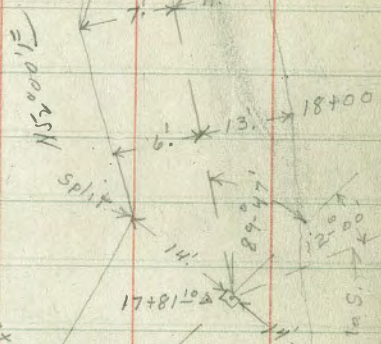 7'
N52°00'E
6'
13'
18+00
Split
89-47'
12-00'
14'
17+81
14'
to S.